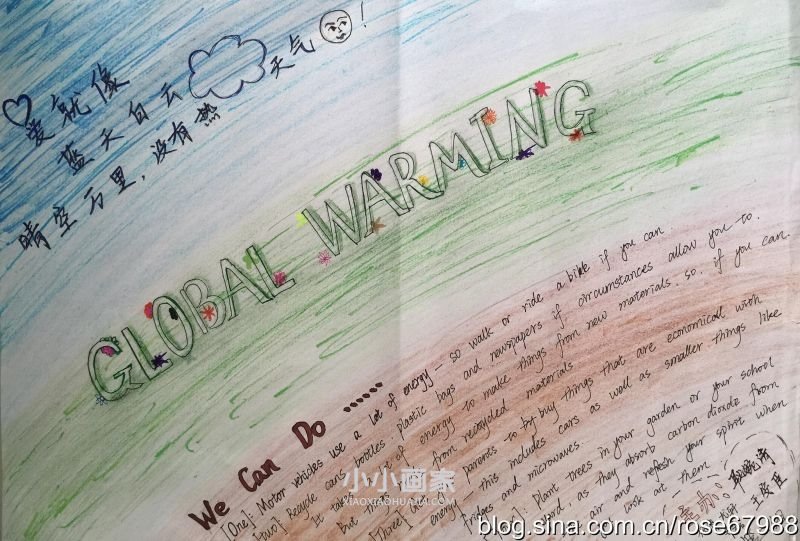 爱就像
蓝天白云天气!
晴空万里,没有
GLOBAL WARMING
We Can Do ......
[One]: Motor vehicles use a lot of energy — so walk or ride a bike if you can.
[Two]: Recycle cans, bottles, plastic bags and newspapers if circumstances allow you to.
It takes of energy to make things from new materials. so. if you can.
but things from recycled materials
[Three]: parents to try buy things that are economical with
energy — this includes cars as well as smaller things like
fridges and microwaves.
]: Plant trees in your garden or your school
yard, as they absorb carbon dioxde from
air and refresh your spirit when
look at them
小小画家
XIAOXIAOHUAJIA.COM
blog.sina.com.cn/rose67988